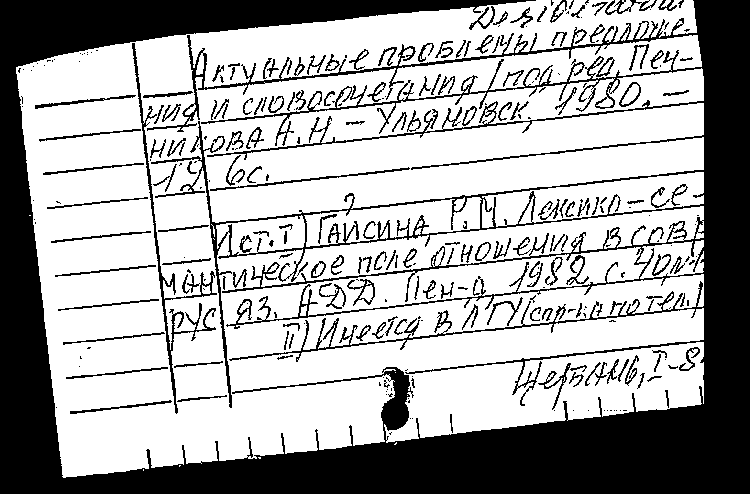 Desiderata
Актуальные проблемы предложе-
ния и словосочетания / под ред. Печ-
никова А.Н. – Ульяновск, 1980. –
126с.
?
Ист. I) Гайсина, Р.М. Лексико-се-
мантическое поле отношения в совр
рус яз. АДД. Лен-д, 1982, с. 40,
II) Имеется в ЛГУ (спр-ка по тел.)
I-8